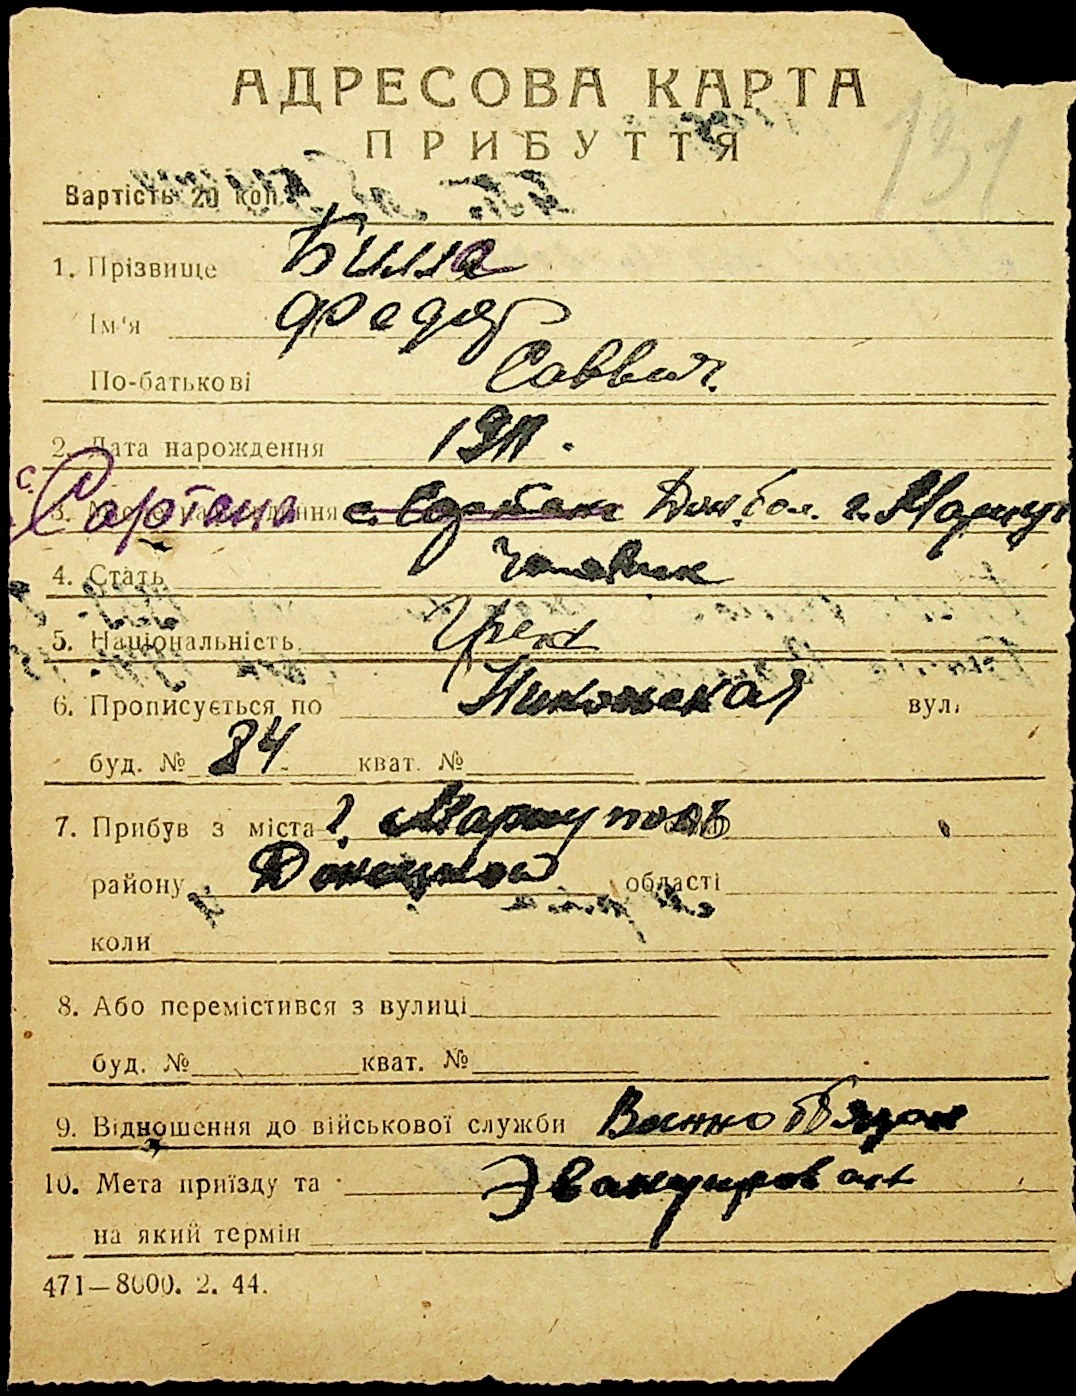 АДРЕСОВА КАРТА
ПРИБУТТЯ
131
Вартість 20 коп.
1. Прізвище Била
Ім'я Федор
По-батькові Саввич.
2. Дата нарождення 1911.
с. Сартана
3. с. Сартана Дон. бол. г. Мариуп
4. Стать Чоловик
5. Національність Грек
6. Прописується по вул.
буд. № 84 кват. №
7. Прибув з міста г. Мариуполь
району Донецкой області
коли
8. Або перемістився з вулиці
буд. № кват. №
9. Відношення до військової служби
10. Мета приїзду та Эвакуирован
на який термін
471—8000. 2. 44.